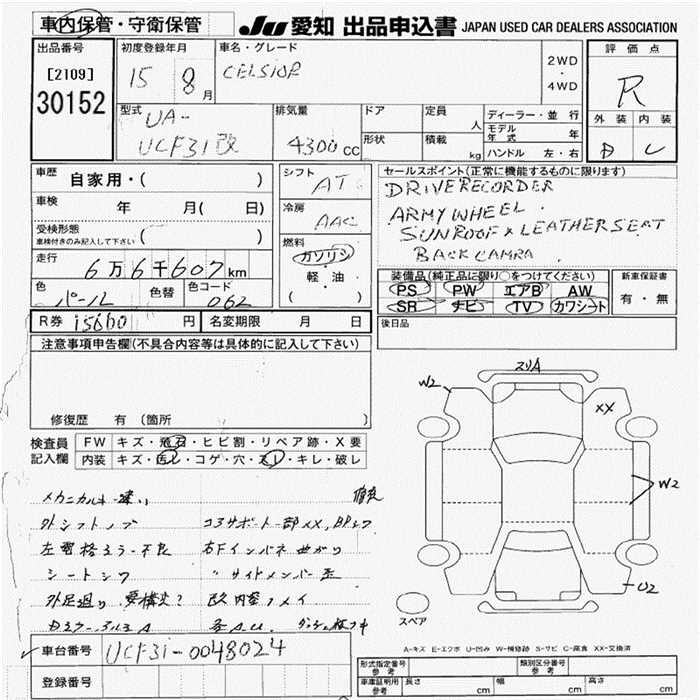 車内保管・守衛保管
JU 愛知 出品申込書 JAPAN USED CAR DEALERS ASSOCIATION
出品番号
[2109]
30152
初度登録年月
15 8月
車名・グレード
CELSIOR
2WD
・
4WD
評価点
R
外装 内装
B C
型式
UA-
UCF31改
排気量
4300cc
ドア
形状
定員
人
積載
kg
ディーラー・並行
モデル年式 年
ハンドル 左・右
車歴 自家用・( )
車検 年 月( 日)
受検形態
車検付きのみ記入して下さい ( )
走行
6万6千607km
色
パール
色替
色コード
062
シフト
AT
冷房
AAC
燃料
ガソリン
・
軽・油
( )
セールスポイント(正常に機能するものに限ります)
DRIVE RECORDER
ARMY WHEEL
SUNROOF × LEATHER SEAT
BACK CAMRA
装備品(純正品に限り○をつけてください)
PS PW エアB AW
SR ナビ TV カワシート
新車保証書
有・無
後日品
R券 15660円
名変期限 月 日
注意事項申告欄(不具合内容等は具体的に記入して下さい)
修復歴 有 (箇所 )
検査員記入欄
FW キズ・飛石・ヒビ割・リペア跡・X要
内装 キズ・汚レ・コゲ・穴・スレ・キレ・破レ
外シフトノブ
コアサポート一部XX,
左電格ミラー不良
右Fインパネ曲がり
シートシワ
〃サイドメンバー
外足廻り 要構変?
車台番号 UCF31-0048024
登録番号
スリA
W2
XX
W2
U2
スペア
A-キズ E-エクボ U-凹み W-補修跡 S-サビ C-腐食 XX-交換済
形式指定番号
参考
類別区分番号
参考
車庫証明用
参考
長さ cm
幅 cm
高さ cm